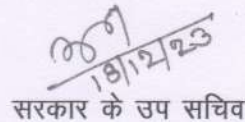 18/12/23
सरकार के उप सचिव